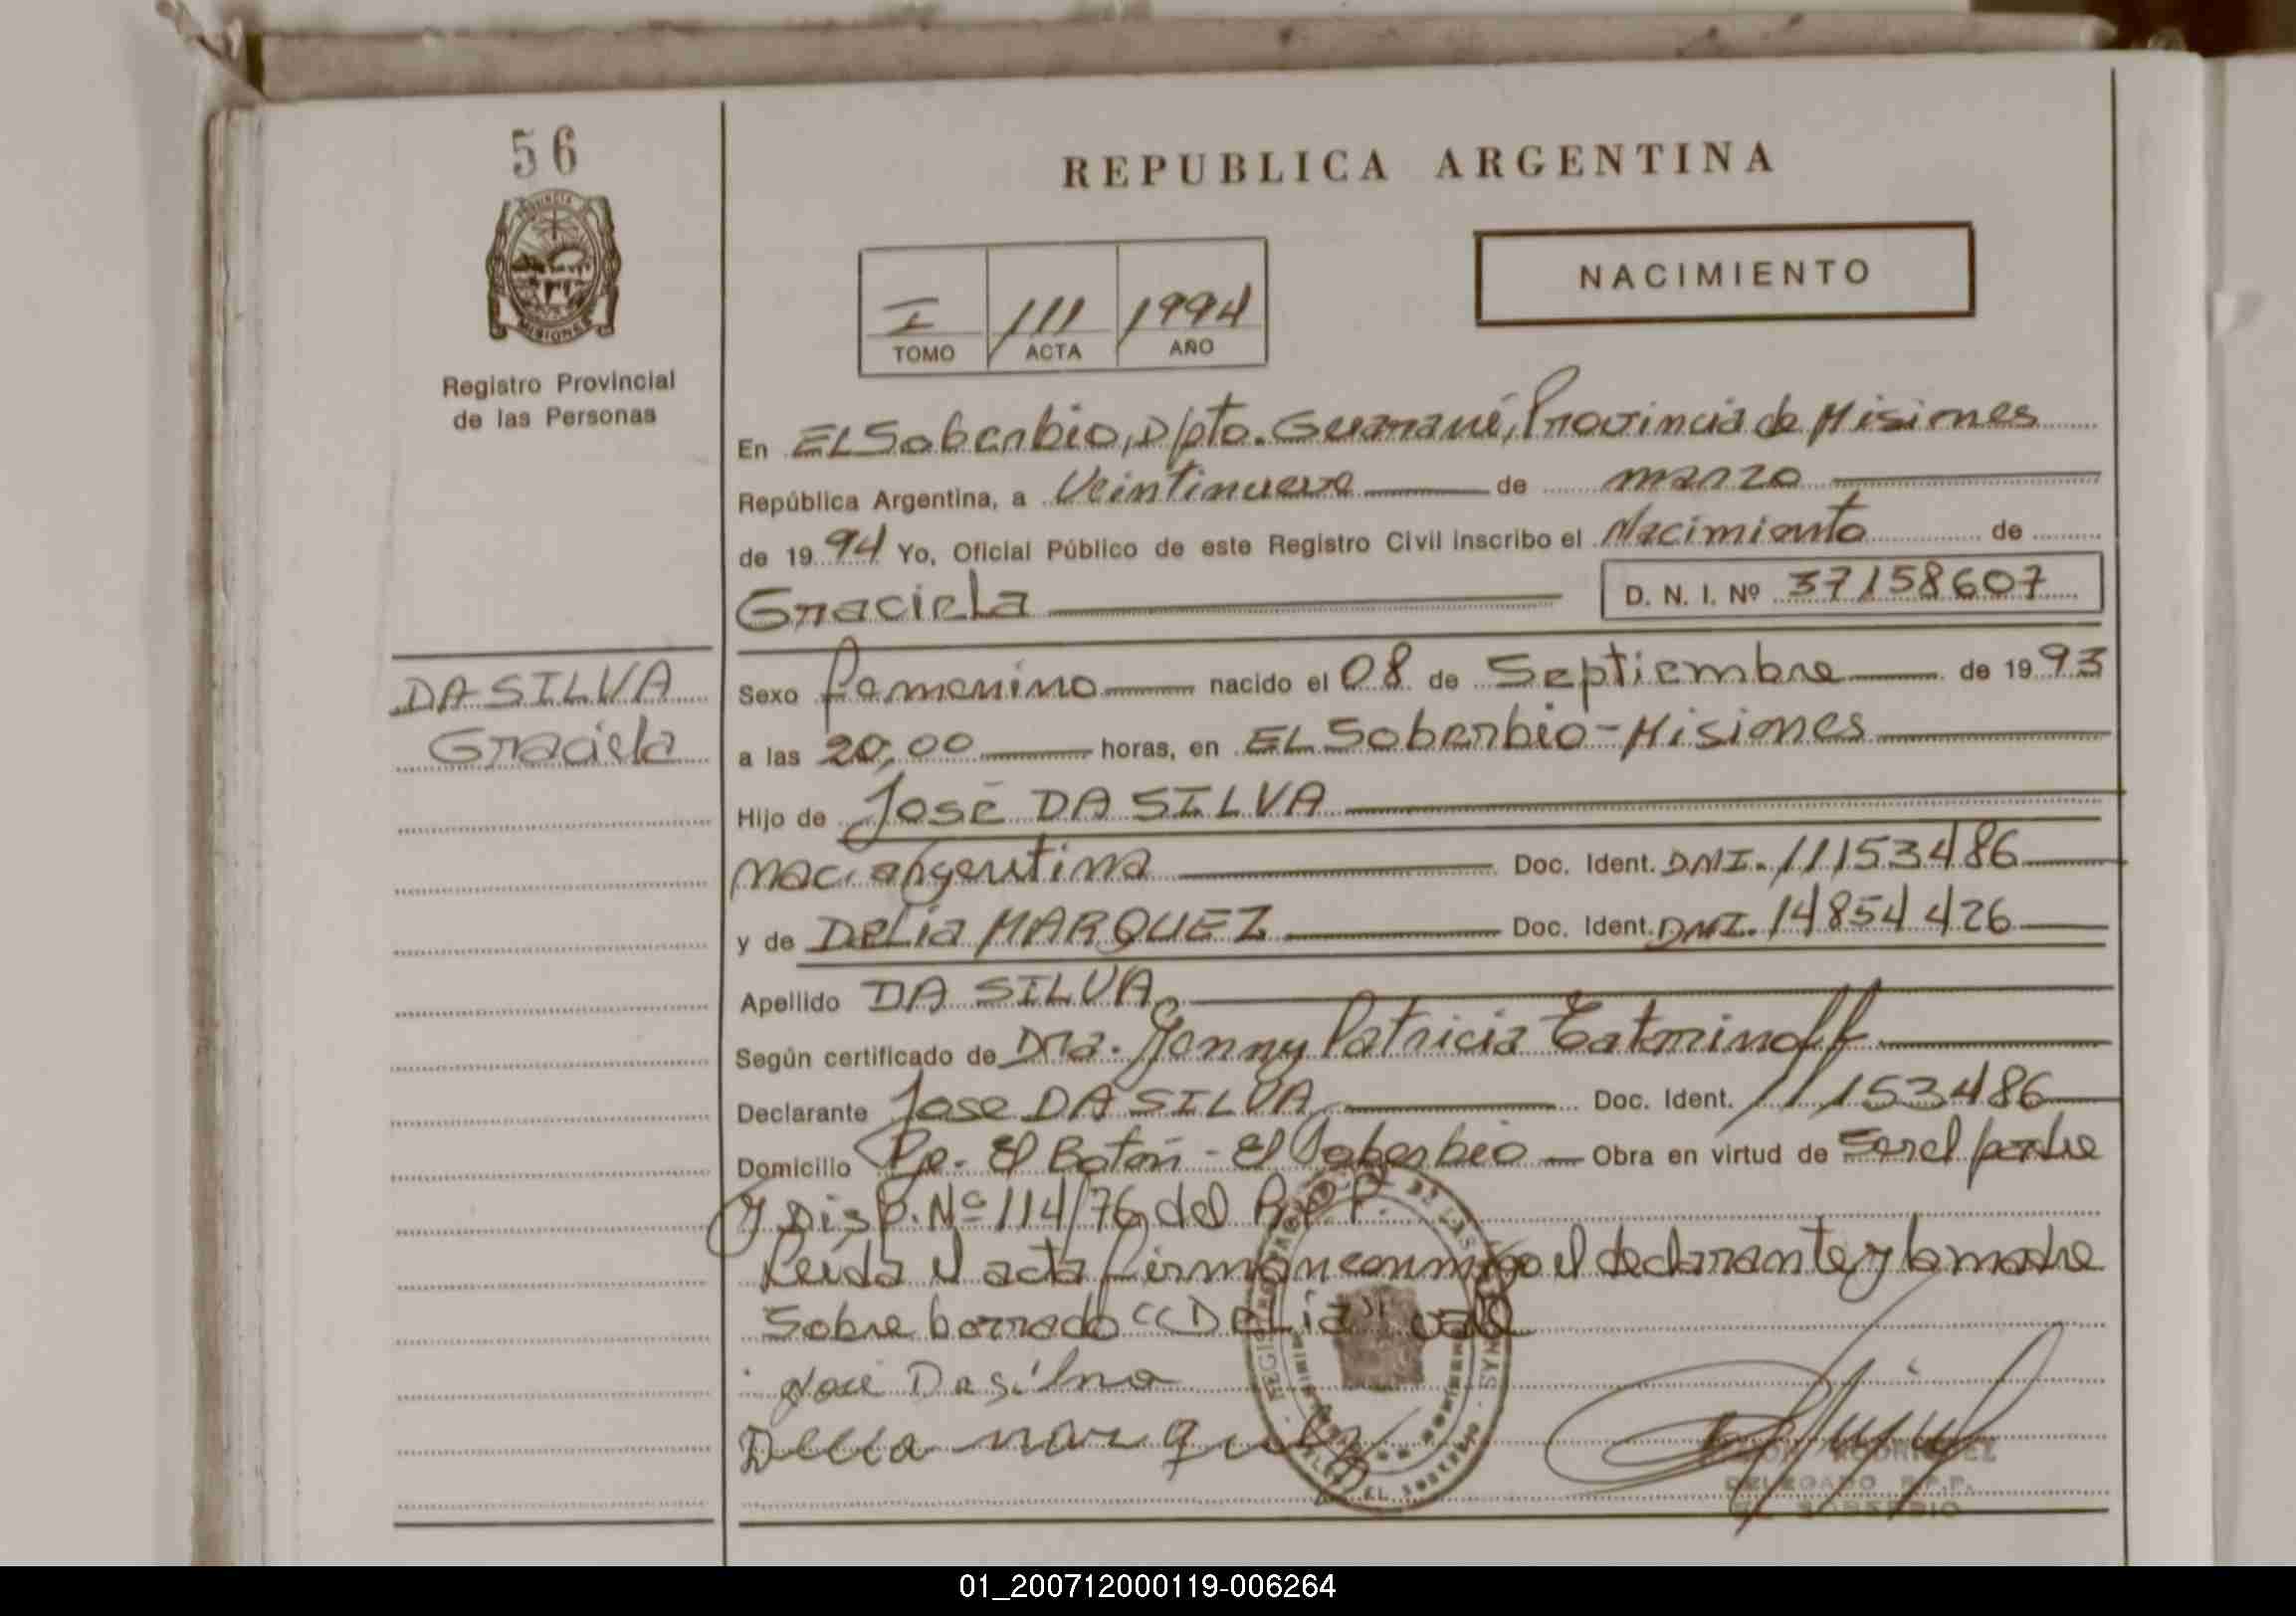 56
REPUBLICA ARGENTINA
NACIMIENTO
I 111 1994
TOMO ACTA AÑO
PROVINCIA DE
MISIONES
Registro Provincial
de las Personas
En EL Soberbio, Dpto. Guaraní, Provincia de Misiones
República Argentina, a Veintinueve de marzo
de 1994 Yo, Oficial Público de este Registro Civil inscribo el Nacimiento de
Graciela D. N. I. Nº 37158607
DA SILVA
Graciela
Sexo femenino nacido el 08 de Septiembre de 1993
a las 20,00 horas, en EL Soberbio - Misiones
Hijo de José DA SILVA
nac. argentina Doc. Ident. DNI. 11153486
y de DELia MARQUEZ Doc. Ident. DNI. 14854426
Apellido DA SILVA
Según certificado de Dra. Jenny Patricia
Declarante Jose DA SILVA Doc. Ident. 11153486
Domicilio El Soberbio Obra en virtud de Ser el padre
y Disp. Nº 114/76 del R.P.P.
Leída el acta firman conmigo el declarante y la madre
Sobre borrado "DELia" vale
José Da silva
Delia marquez
RODRIGUEZ
DELEGADO R.P.P.
EL SOBERBIO
01_200712000119-006264